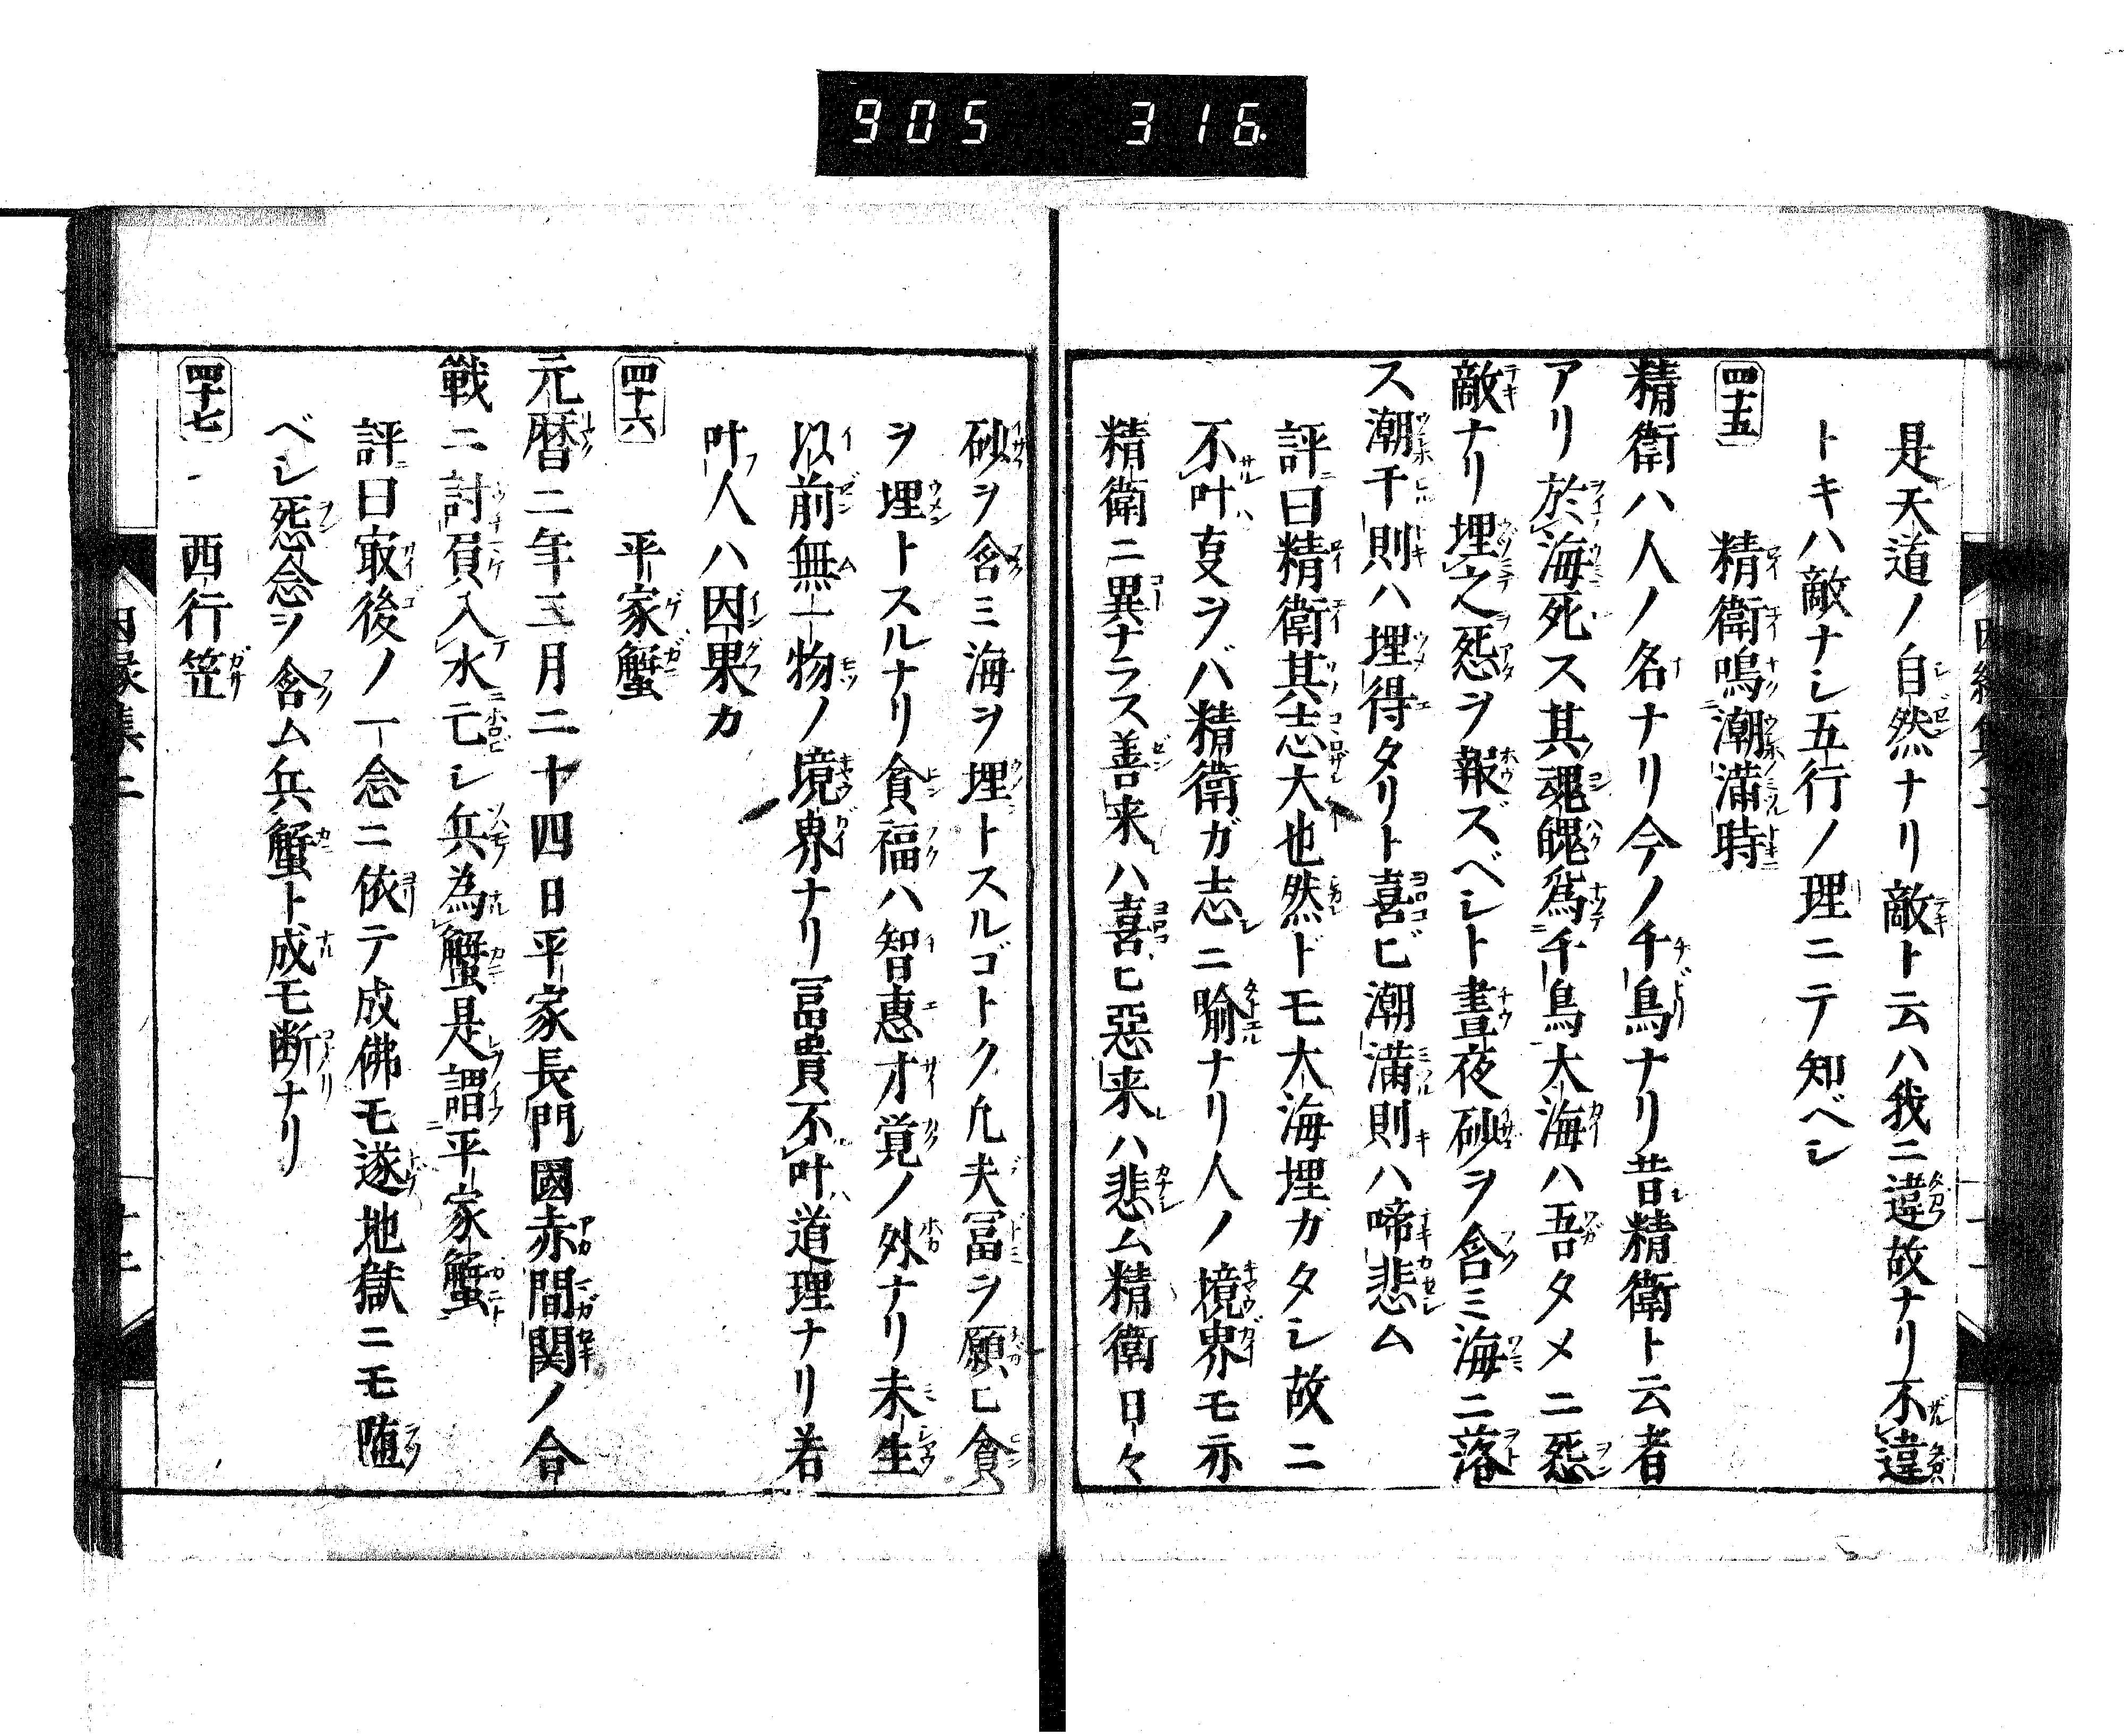 905 316
是天道ノ自然ナリ敵ト云ハ我ニ違故ナリ不違
トキハ敵ナシ五行ノ理ニテ知ベシ
四十五 精衛鳴潮満時
精衛ハ人ノ名ナリ今ノ千鳥ナリ昔精衛ト云者
アリ於海死ス其魂魄為千鳥大海ハ吾タメニ怨
敵ナリ埋之怨ヲ報ズベシト晝夜砂ヲ含ミ海ニ落
ス潮干則ハ埋得タリト喜ビ潮満則ハ啼悲ム
評曰精衛其志大也然ドモ大海埋ガタシ故ニ
不叶叓ヲバ精衛ガ志ニ喩ナリ人ノ境界モ亦
精衛ニ異ナラス善来ハ喜ヒ惡来ハ悲ム精衛日々
砂ヲ含ミ海ヲ埋トスルゴトク凢夫冨ヲ願ヒ貪
ヲ埋トスルナリ貪福ハ智惠才覚ノ外ナリ未生
以前無一物ノ境界ナリ冨貴不叶道理ナリ若
叶人ハ因果カ
四十六 平家蟹
元暦二年三月二十四日平家長門國赤間関ノ合
戰ニ討負入水亡シ兵為蟹是謂平家蟹
評曰㝡後ノ一念ニ依テ成佛モ遂地獄ニモ堕
ベシ怨念ヲ含ム兵蟹ト成モ断ナリ
四十七 西行笠